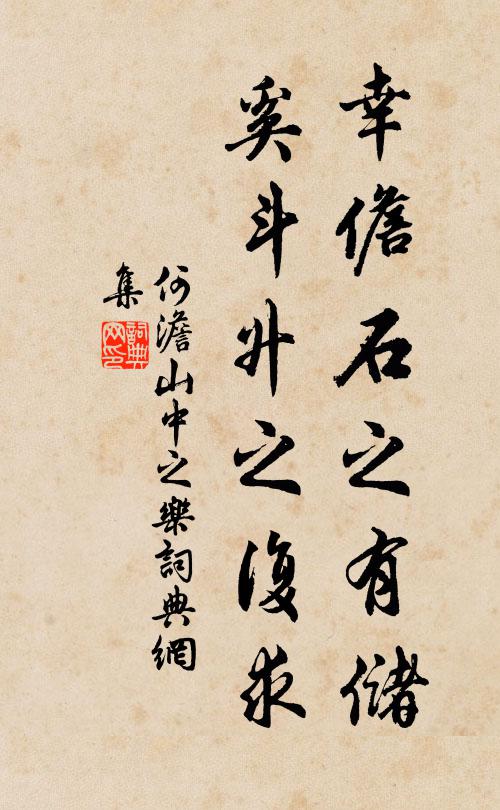 幸儋石之有儲
奚斗升之復求
何澹山中之樂詞典網
集
詞典網印